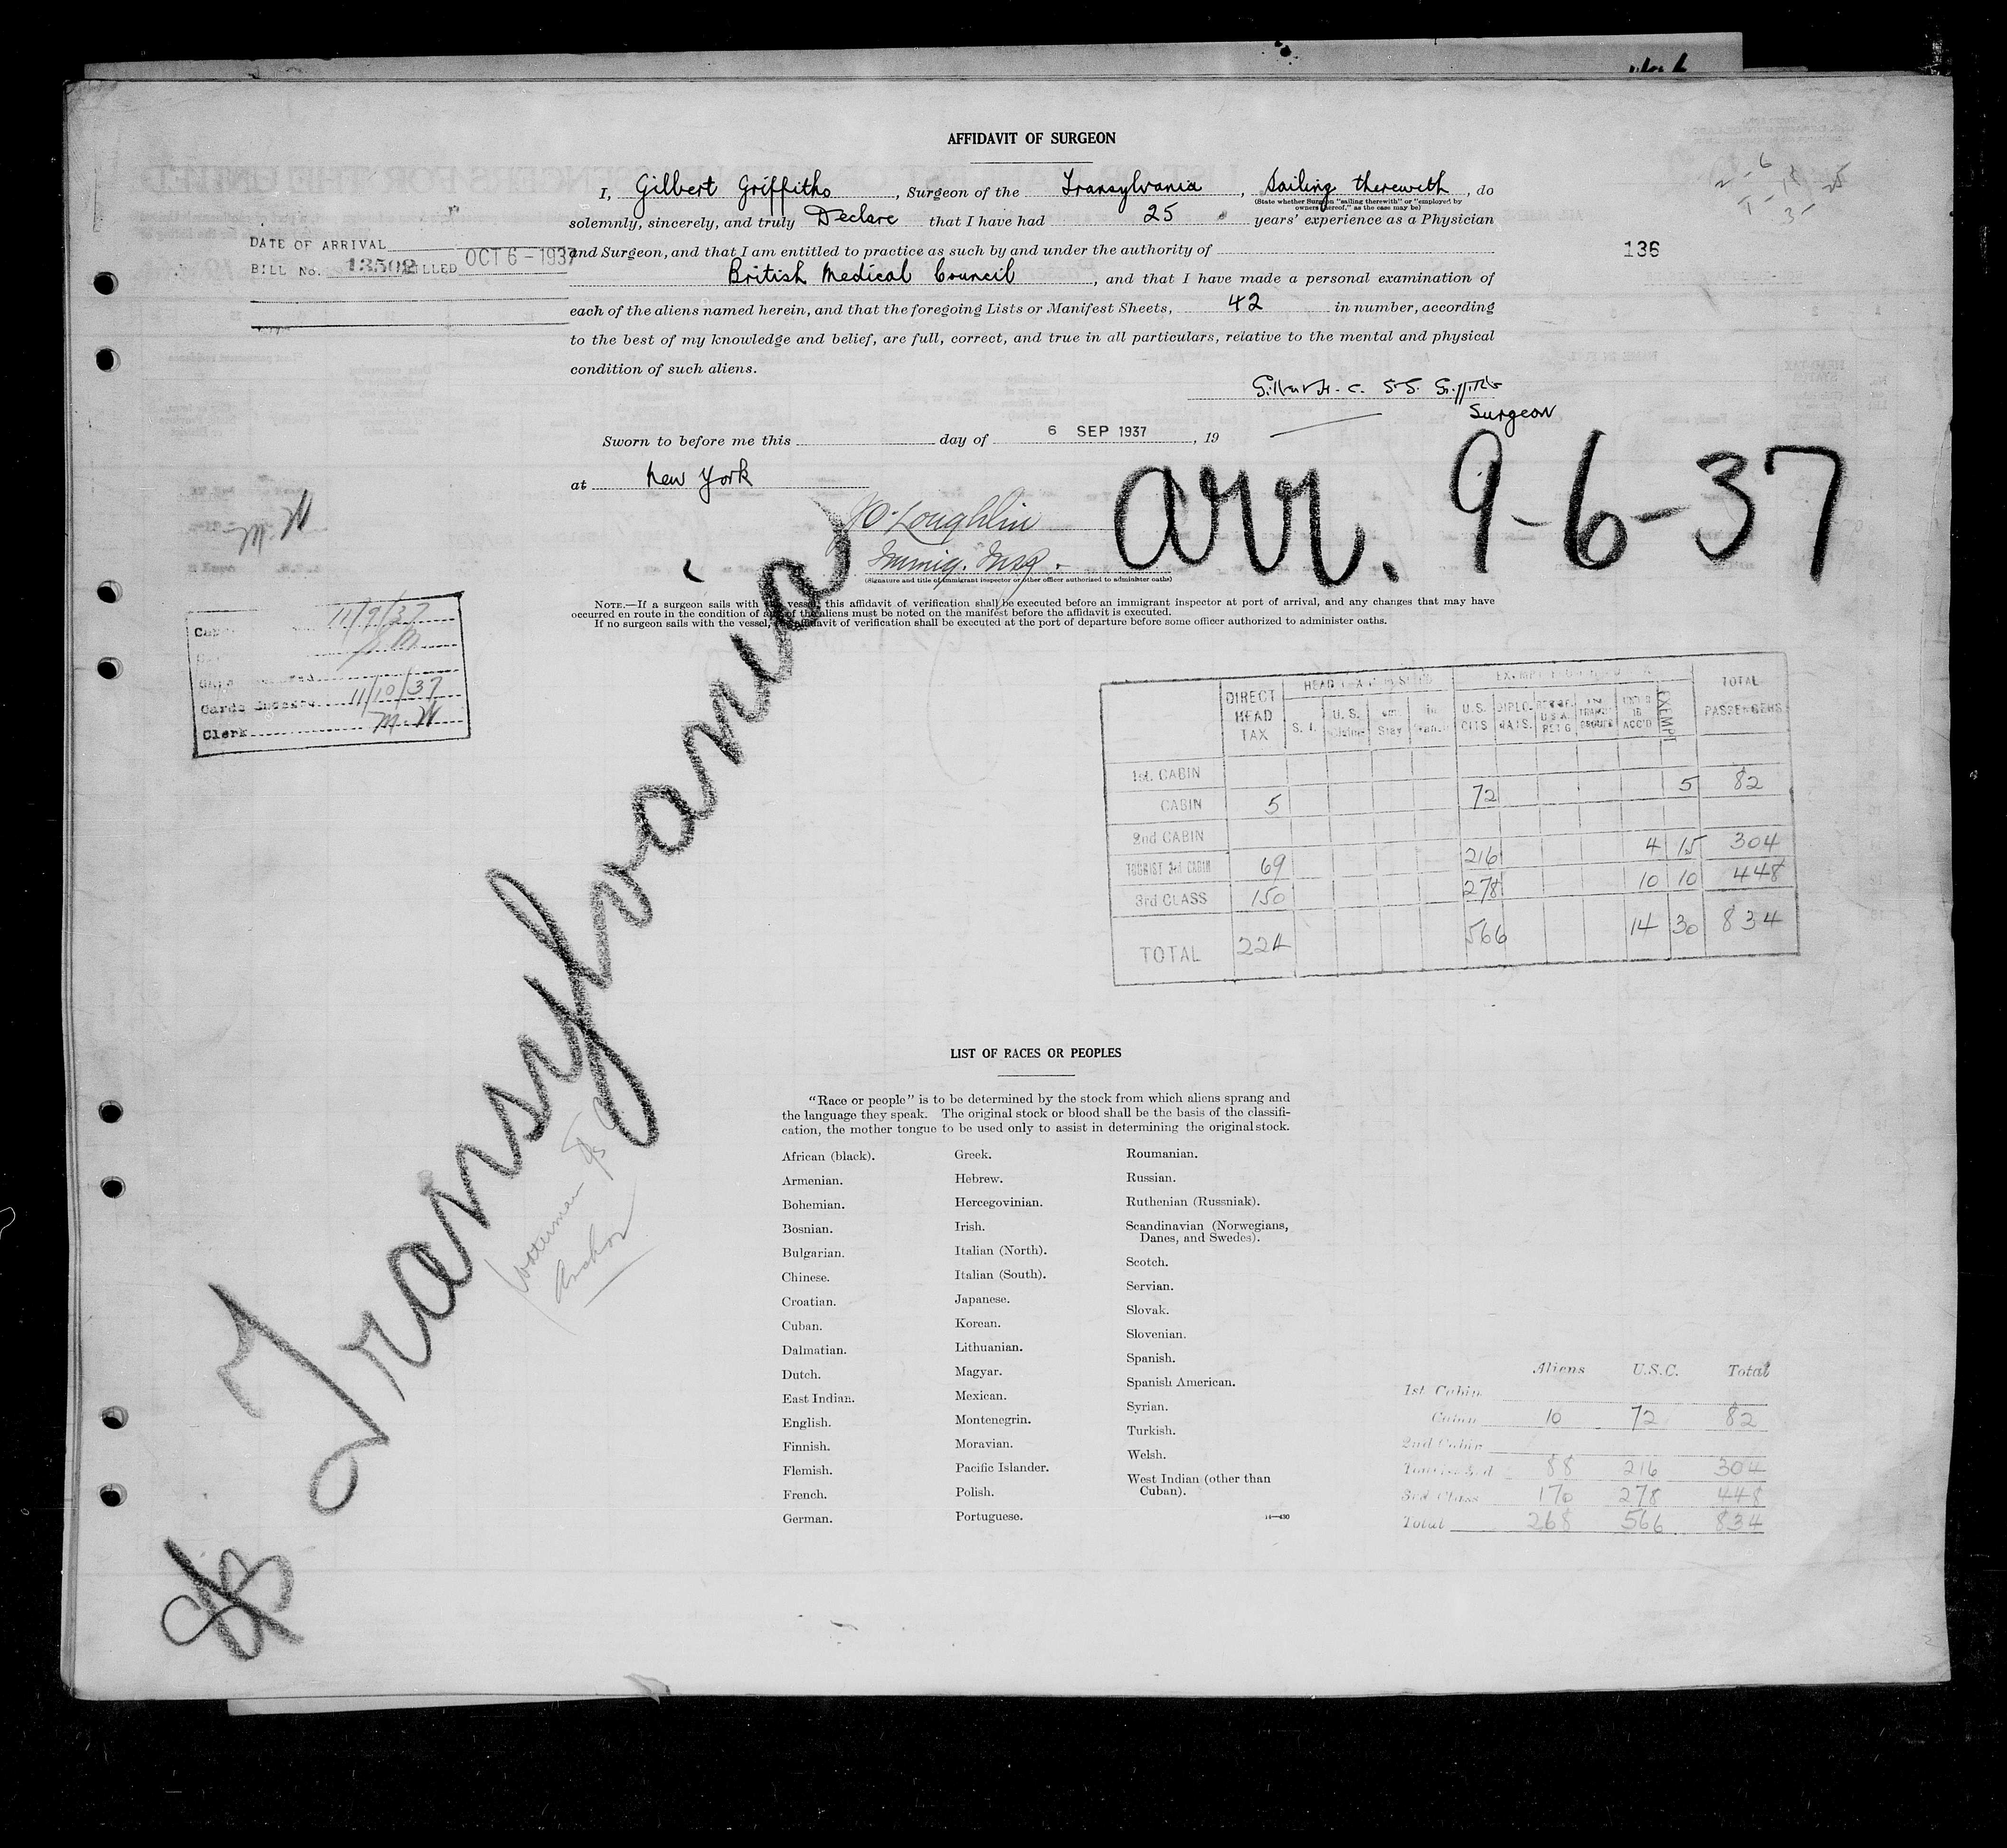 AFFIDAVIT OF SURGEON
I, Gilbert Griffiths, Surgeon of the Transylvania, Sailing therewith, do
(State whether Surgeon "sailing therewith" or "employed by
owners thereof," as the case may be)
solemnly, sincerely, and truly Declare that I have had 25 years' experience as a Physician
and Surgeon, and that I am entitled to practice as such by and under the authority of
British Medical Council, and that I have made a personal examination of
each of the aliens named herein, and that the foregoing Lists or Manifest Sheets, 42 in number, according
to the best of my knowledge and belief, are full, correct, and true in all particulars, relative to the mental and physical
condition of such aliens.
Surgeon
DATE OF ARRIVAL
BILL No. 13502 BILLED OCT 6 - 1937
136
Sworn to before me this day of 6 SEP 1937, 19
at New York
arr. 9-6-37
O'Loughlin
Immig. Insp.
(Signature and title of immigrant inspector or other officer authorized to administer oaths)
NOTE.—If a surgeon sails with the vessel, this affidavit of verification shall be executed before an immigrant inspector at port of arrival, and any changes that may have
occurred en route in the condition of any of the aliens must be noted on the manifest before the affidavit is executed.
If no surgeon sails with the vessel, the affidavit of verification shall be executed at the port of departure before some officer authorized to administer oaths.
M.W
11/9/37
Cards Indexed 11/10/37
Clerk M.W
Transylvania
Anchor
DIRECT HEAD TAX S. I. U. S. U.S. CITS. DIPLO- MATS. IN TRANSIT GROUPS UNDER 16 ACC'D EXEMPT TOTAL PASSENGERS
1st. CABIN
CABIN 5 72 5 82
2nd CABIN
TOURIST 3rd CABIN 69 216 4 15 304
3rd CLASS 150 278 10 10 448
TOTAL 224 566 14 30 834
LIST OF RACES OR PEOPLES
"Race or people" is to be determined by the stock from which aliens sprang and
the language they speak. The original stock or blood shall be the basis of the classifi-
cation, the mother tongue to be used only to assist in determining the original stock.
African (black).
Armenian.
Bohemian.
Bosnian.
Bulgarian.
Chinese.
Croatian.
Cuban.
Dalmatian.
Dutch.
East Indian.
English.
Finnish.
Flemish.
French.
German.
Greek.
Hebrew.
Hercegovinian.
Irish.
Italian (North).
Italian (South).
Japanese.
Korean.
Lithuanian.
Magyar.
Mexican.
Montenegrin.
Moravian.
Pacific Islander.
Polish.
Portuguese.
Roumanian.
Russian.
Ruthenian (Russniak).
Scandinavian (Norwegians,
Danes, and Swedes).
Scotch.
Servian.
Slovak.
Slovenian.
Spanish.
Spanish American.
Syrian.
Turkish.
Welsh.
West Indian (other than
Cuban).
14—430
Aliens U.S.C. Total
1st Cabin
Cabin 10 72 82
2nd Cabin
Tourist 3rd 88 216 304
3rd Class 170 278 448
Total 268 566 834